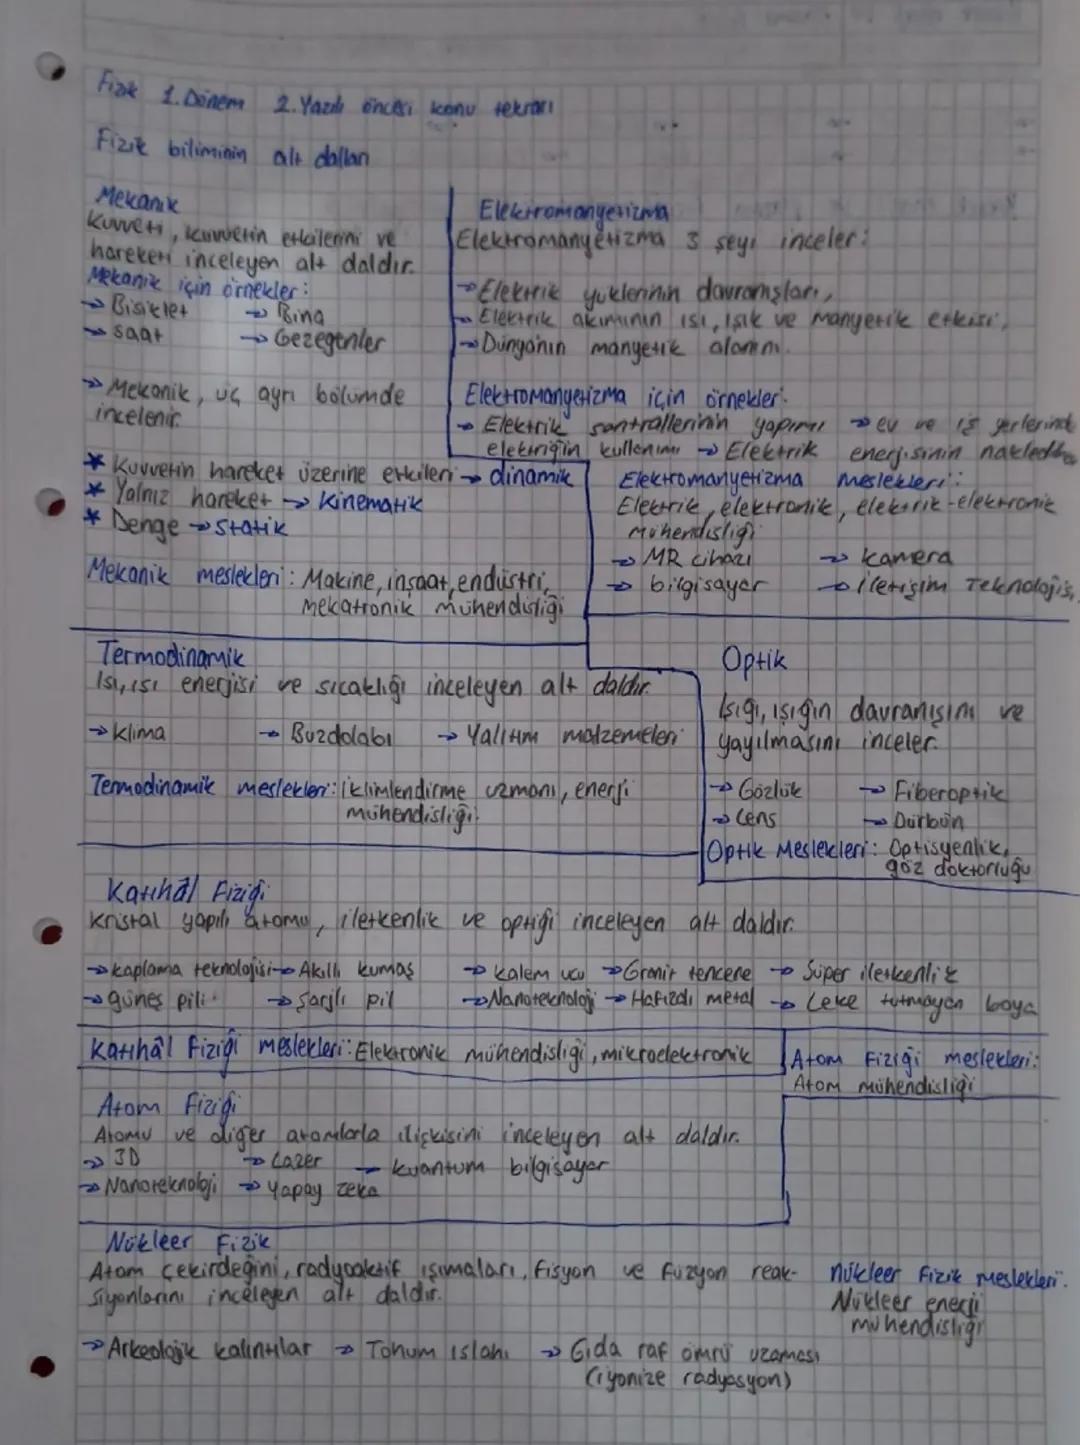 Fizik 1.Dönem 2.Yazılı öncesi konu tekrarı
Fizik biliminin alt dalları
Mekanik
Kuvveti, kuvvetin etkilerini ve
hareketi inceleyen alt daldır.
Mekanik için örnekler:
→ Bisiklet → Bina
→ saat → Gezegenler
→ Mekanik, üç ayrı bölümde
incelenir.
* Kuvvetin hareket üzerine etkileri → dinamik
* Yalnız hareket → Kinematik
* Denge → statik
Mekanik meslekleri: Makine, inşaat, endüstri,
mekatronik mühendisliği
Elektromanyetizma
Elektromanyetizma 3 şeyi inceler:
→ Elektrik yüklerinin davranışları,
→ Elektrik akımının ısı, ışık ve manyetik etkisi,
→ Dünyanın manyetik alanını.
Elektromanyetizma için örnekler:
→ Elektrik santrallerinin yapımı → ev ve iş yerlerinde
elektriğin kullanımı → Elektrik enerjisinin
Elektromanyetizma meslekleri:
Elektrik, elektronik, elektrik-elektronik
mühendisliği
→ MR cihazı → kamera
→ bilgisayar → iletişim Teknolojisi
Termodinamik
Isı, ısı enerjisi ve sıcaklığı inceleyen alt daldır.
→ Klima → Buzdolabı → Yalıtım malzemeleri
Termodinamik meslekleri: İklimlendirme uzmanı, enerji
mühendisliği.
Optik
Işığı, ışığın davranışını ve
yayılmasını inceler.
→ Gözlük → Fiberoptik
→ Lens → Dürbün
Optik Meslekleri: Optisyenlik,
göz doktorluğu
Katıhâl Fiziği
Kristal yapılı atomu, iletkenlik ve optiği inceleyen alt daldır.
→ kaplama teknolojisi → Akıllı kumaş → kalem ucu → Granit tencere → Süper iletkenlik
→ güneş pili → şarjlı pil → Nanoteknoloji → Hafızalı metal → Leke tutmayan boya
Katıhâl Fiziği meslekleri: Elektronik mühendisliği, mikroelektronik
Atom Fiziği meslekleri:
Atom mühendisliği
Atom Fiziği
Atomu ve diğer atomlarla ilişkisini inceleyen alt daldır.
→ 3D → Lazer → kuantum bilgisayar
→ Nanoteknoloji → Yapay zeka
Nükleer Fizik
Atom çekirdeğini, radyoaktif ışımaları, fisyon ve füzyon reak-
siyonlarını inceleyen alt daldır.
Nükleer Fizik meslekleri:
Nükleer enerji
mühendisliği
→ Arkeolojik kalıntılar → Tohum ıslahı → Gıda raf ömrü uzaması
(iyonize radyasyon)